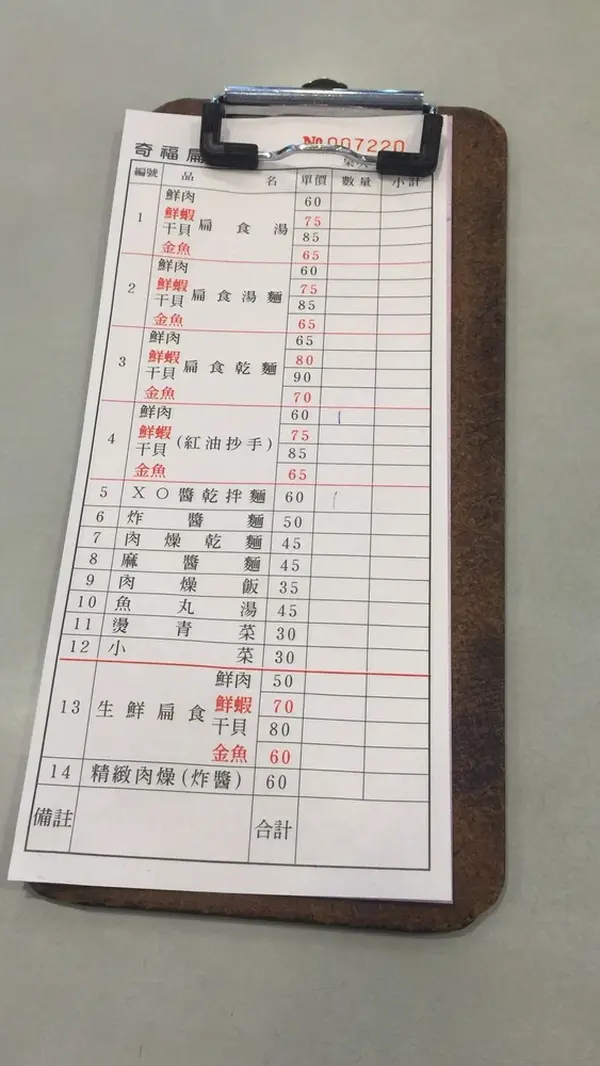 奇福扁
№007220
編號 品名 單價 數量 小計
1 扁食湯
鮮肉 60
鮮蝦 75
干貝 85
金魚 65
2 扁食湯麵
鮮肉 60
鮮蝦 75
干貝 85
金魚 65
3 扁食乾麵
鮮肉 65
鮮蝦 80
干貝 90
金魚 70
4 (紅油抄手)
鮮肉 60
鮮蝦 75
干貝 85
金魚 65
5 XO醬乾拌麵 60
6 炸醬麵 50
7 肉燥乾麵 45
8 麻醬麵 45
9 肉燥飯 35
10 魚丸湯 45
11 燙青菜 30
12 小菜 30
13 生鮮扁食
鮮肉 50
鮮蝦 70
干貝 80
金魚 60
14 精緻肉燥(炸醬) 60
備註 合計